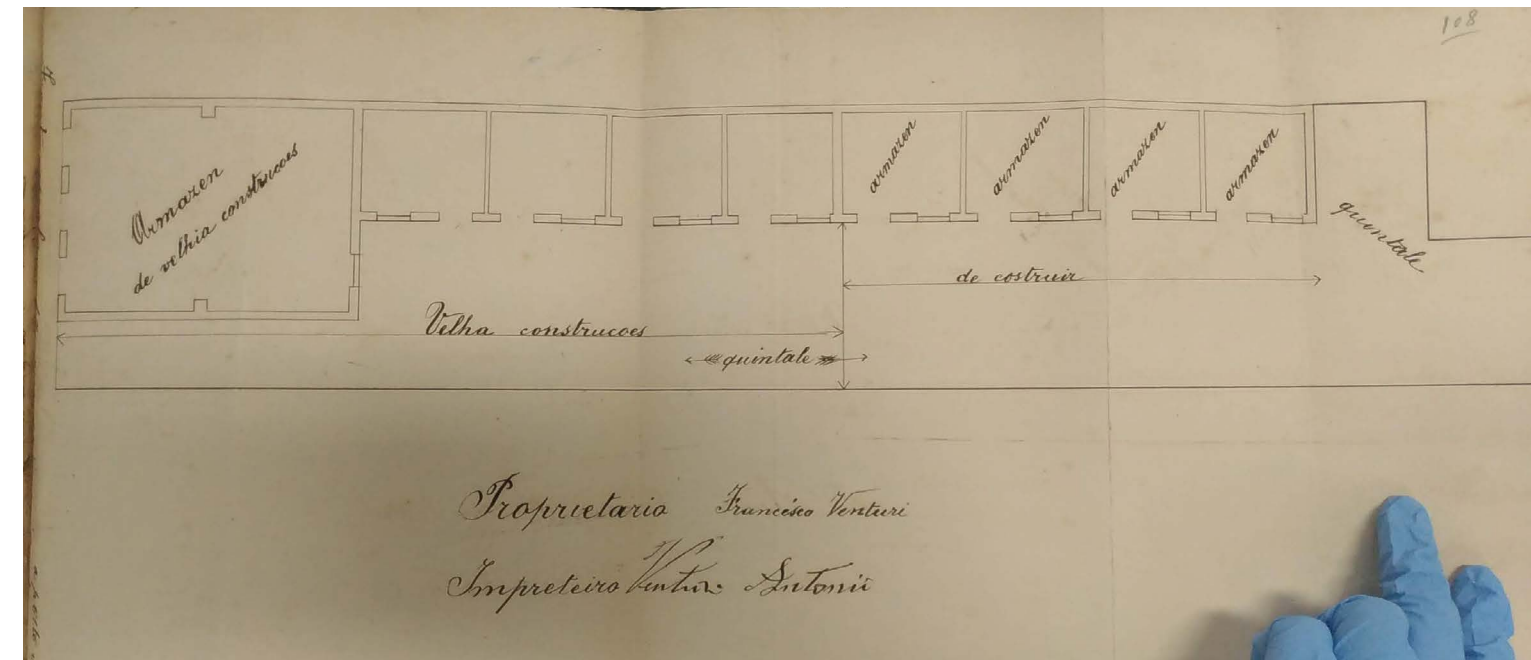 108
Armazen
de velhia construcoes
armazen
armazen
armazen
armazen
quintale
de costruir
Velha construcoes
quintale
Proprietario Francésco Venturi
Impreteiro Venturi Antonio